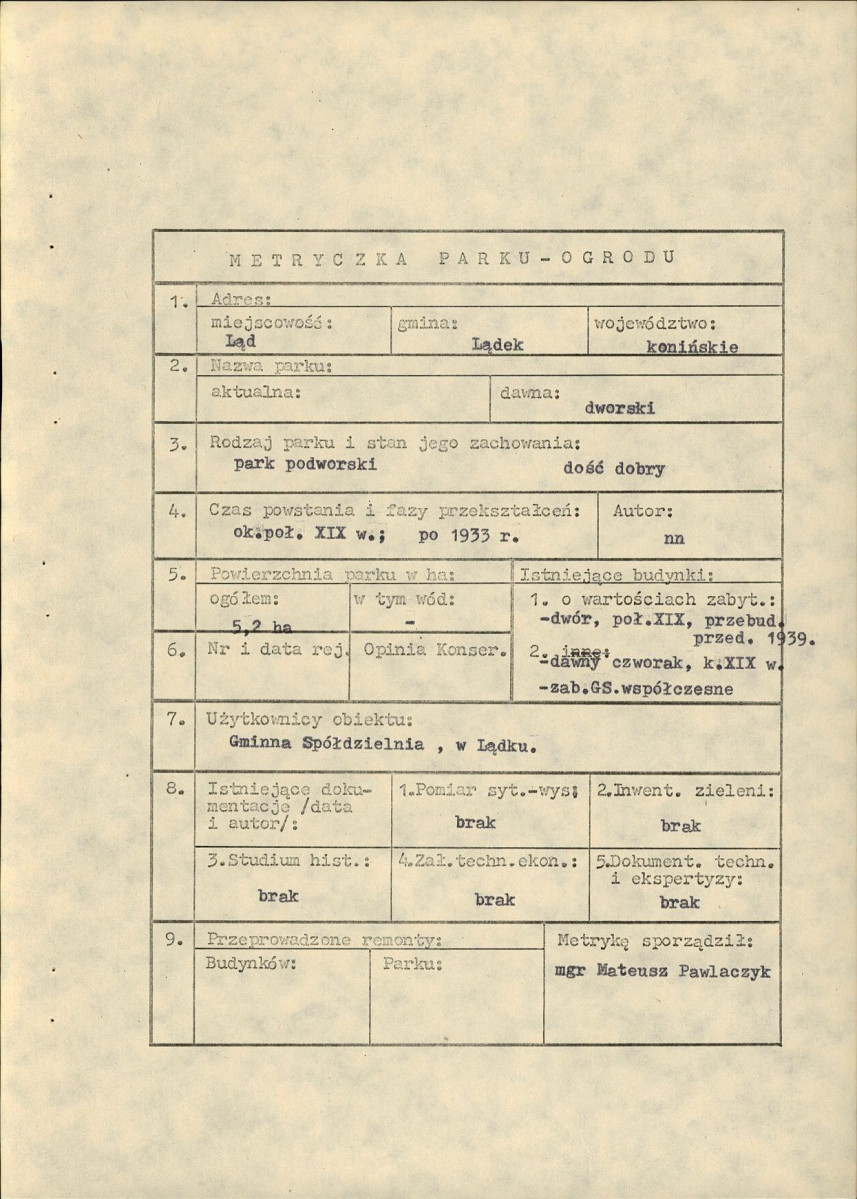 METRYCZKA PARKU-OGRODU
1. Adres:
miejscowość: gmina: województwo:
Ląd Lądek konińskie
2. Nazwa parku:
aktualna: dawna:
dworski
3. Rodzaj parku i stan jego zachowania:
park podworski dość dobry
4. Czas powstania i fazy przekształceń: Autor:
ok.poł. XIX w.; po 1933 r. nn
5. Powierzchnia parku w ha: Istniejące budynki:
ogółem: w tym wód: 1. o wartościach zabyt.:
5,2 ha - -dwór, poł.XIX, przebud.
przed. 1939.
6. Nr i data rej. Opinia Konser. 2. inne:
-dawny czworak, k.XIX w.
-zab.GS.współczesne
7. Użytkownicy obiektu:
Gminna Spółdzielnia , w Lądku.
8. Istniejące doku- 1.Pomiar syt.-wys: 2.Inwent. zieleni:
mentacje /data
i autor/: brak brak
3.Studium hist.: 4.Zał.techn.ekon.: 5.Dokument. techn.
i ekspertyzy:
brak brak brak
9. Przeprowadzone remonty: Metrykę sporządził:
Budynków: Parku: mgr Mateusz Pawlaczyk